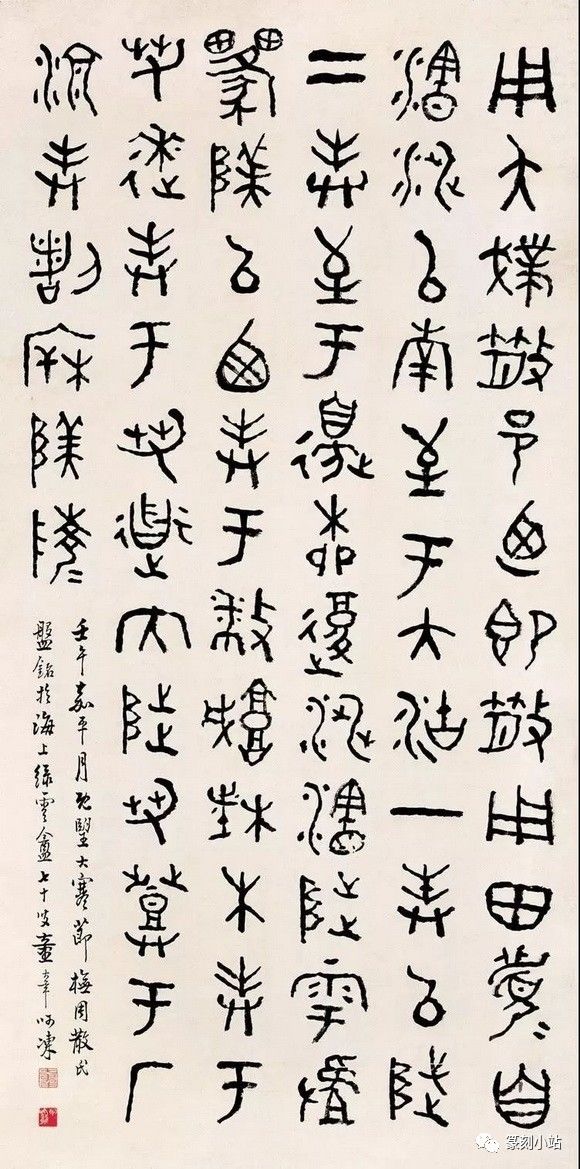 用夨撲散邑乃即散用田眉自
瀗涉以南至于大沽一封以陟
二封至于邊柳復涉瀗陟雩
陕以西封于播城楮木封于
芻逨封于芻道內陟芻登于厂
湶封割柝陕陵
壬午嘉平月既望大寒節橅周散氏
盤銘於海上綠雲盦七十叟童大年呵凍
篆刻小站